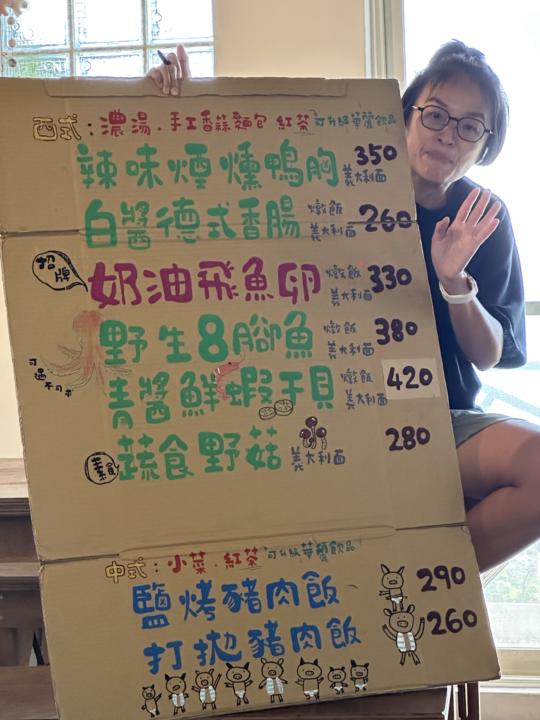 西式：濃湯．手工香蒜麵包 紅茶 可升級華麗飲品
辣味煙燻鴨胸 義大利面 350
白醬德式香腸 燉飯 義大利面 260
招牌 奶油飛魚卵 燉飯 義大利面 330
野生8腳魚 燉飯 義大利面 380
可遇不可求
青醬鮮蝦干貝 燉飯 義大利面 420
素食 蔬食野菇 義大利面 280
中式：小菜．紅茶 可升級華麗飲品
鹽烤豬肉飯 290
打拋豬肉飯 260